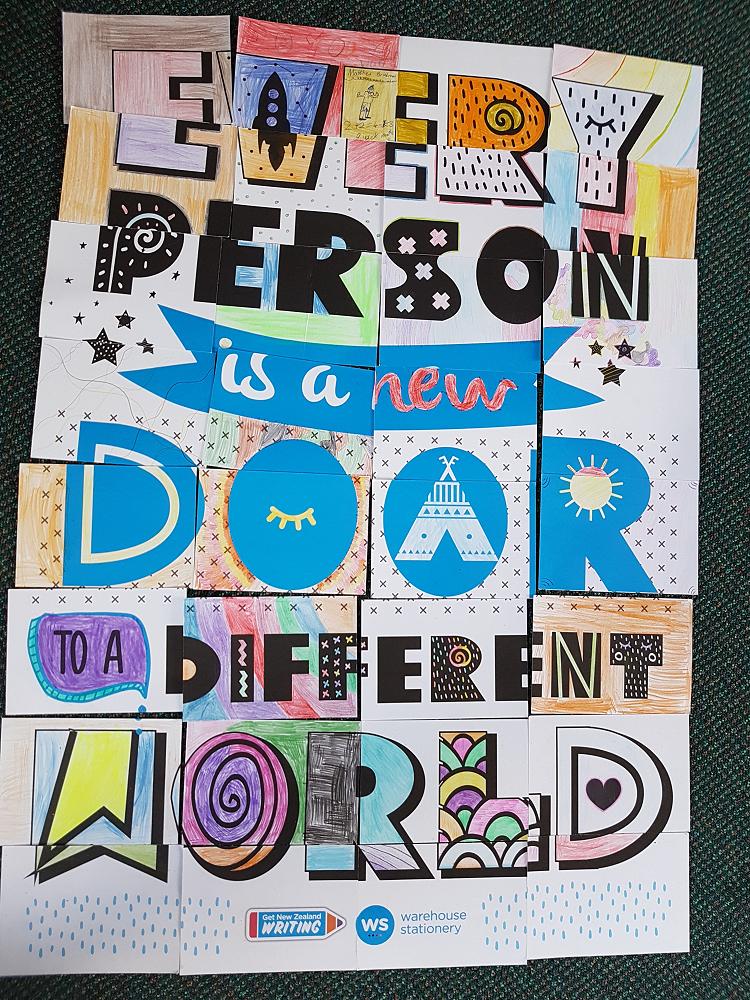 EVERY
PERSON
is a new
DOOR
TO A DIFFERENT
WORLD
Get New Zealand
WRITING
WS warehouse
stationery